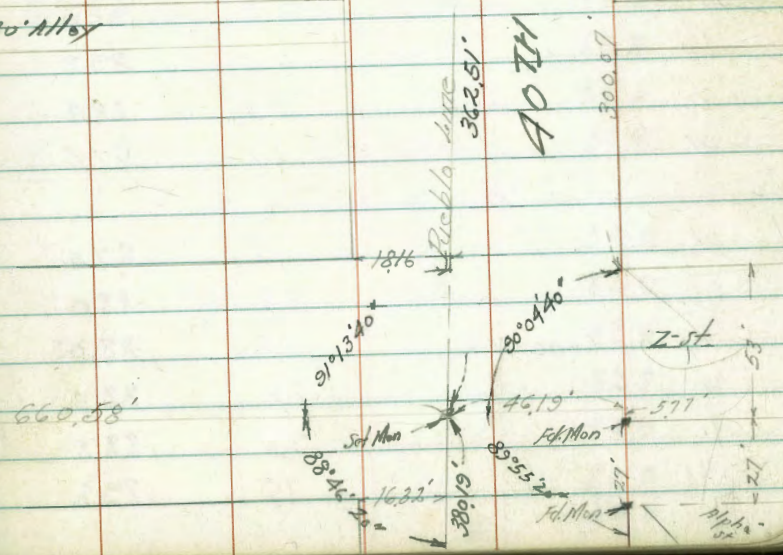 20' Alley
Pueblo Line
362.51'
40 TH
300.07'
18.16
91°13'40"
90°04'40"
Z-st.
53'
660.58'
46.19'
5.77'
Set Mon
Fd. Mon
88°46'20"
89°55'20"
16.32'
380.19'
27'
27'
Fd. Mon
Alpha
st